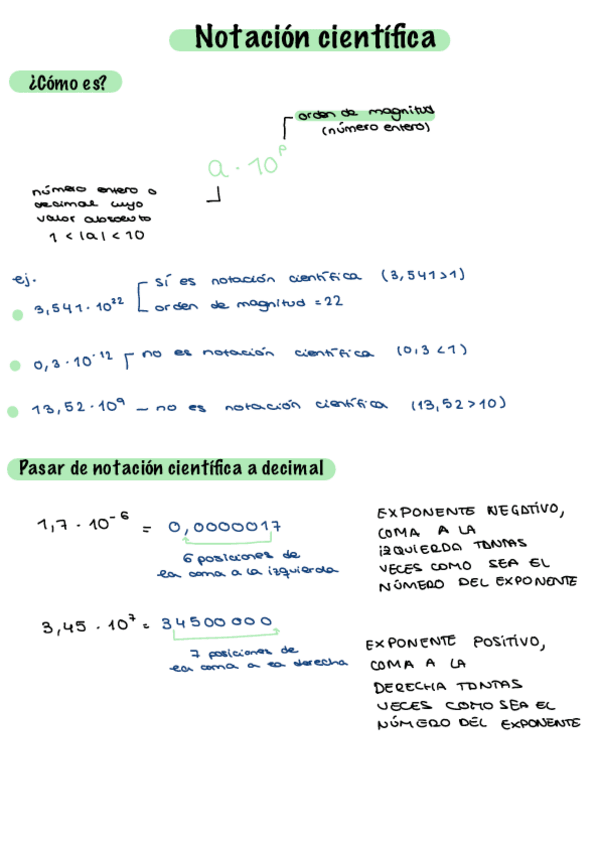 Notación científica
¿Cómo es?
orden de magnitud
(número entero)
a · 10^p
número entero o
decimal cuyo
valor absoluto
1 < |a| < 10
ej.
3,541 · 10^22
sí es notación científica (3,541>1)
orden de magnitud = 22
0,3 · 10^-12 no es notación científica (0,3 <1)
13,52 · 10^9 – no es notación científica (13,52 >10)
Pasar de notación científica a decimal
1,7 · 10^-6 = 0,0000017
6 posiciones de
la coma a la izquierda
EXPONENTE NEGATIVO,
COMA A LA
IZQUIERDA TANTAS
VECES COMO SEA EL
NÚMERO DEL EXPONENTE
3,45 · 10^7 = 34500000
7 posiciones de
la coma a la derecha
EXPONENTE POSITIVO,
COMA A LA
DERECHA TANTAS
VECES COMO SEA EL
NÚMERO DEL EXPONENTE